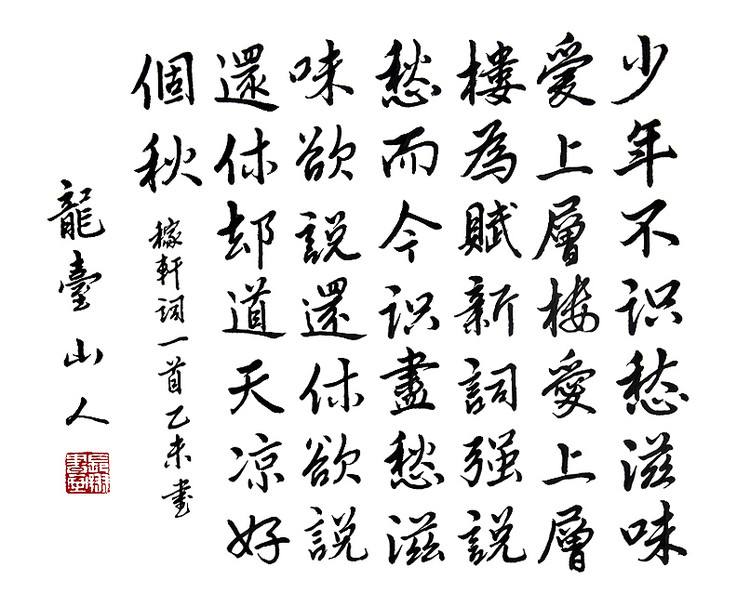 少年不识愁滋味
爱上層楼爱上層
樓為賦新詞强説
愁而今识盡愁滋
味欲説還休欲説
還休却道天凉好
個秋
稼軒詞一首乙未書
龍臺山人